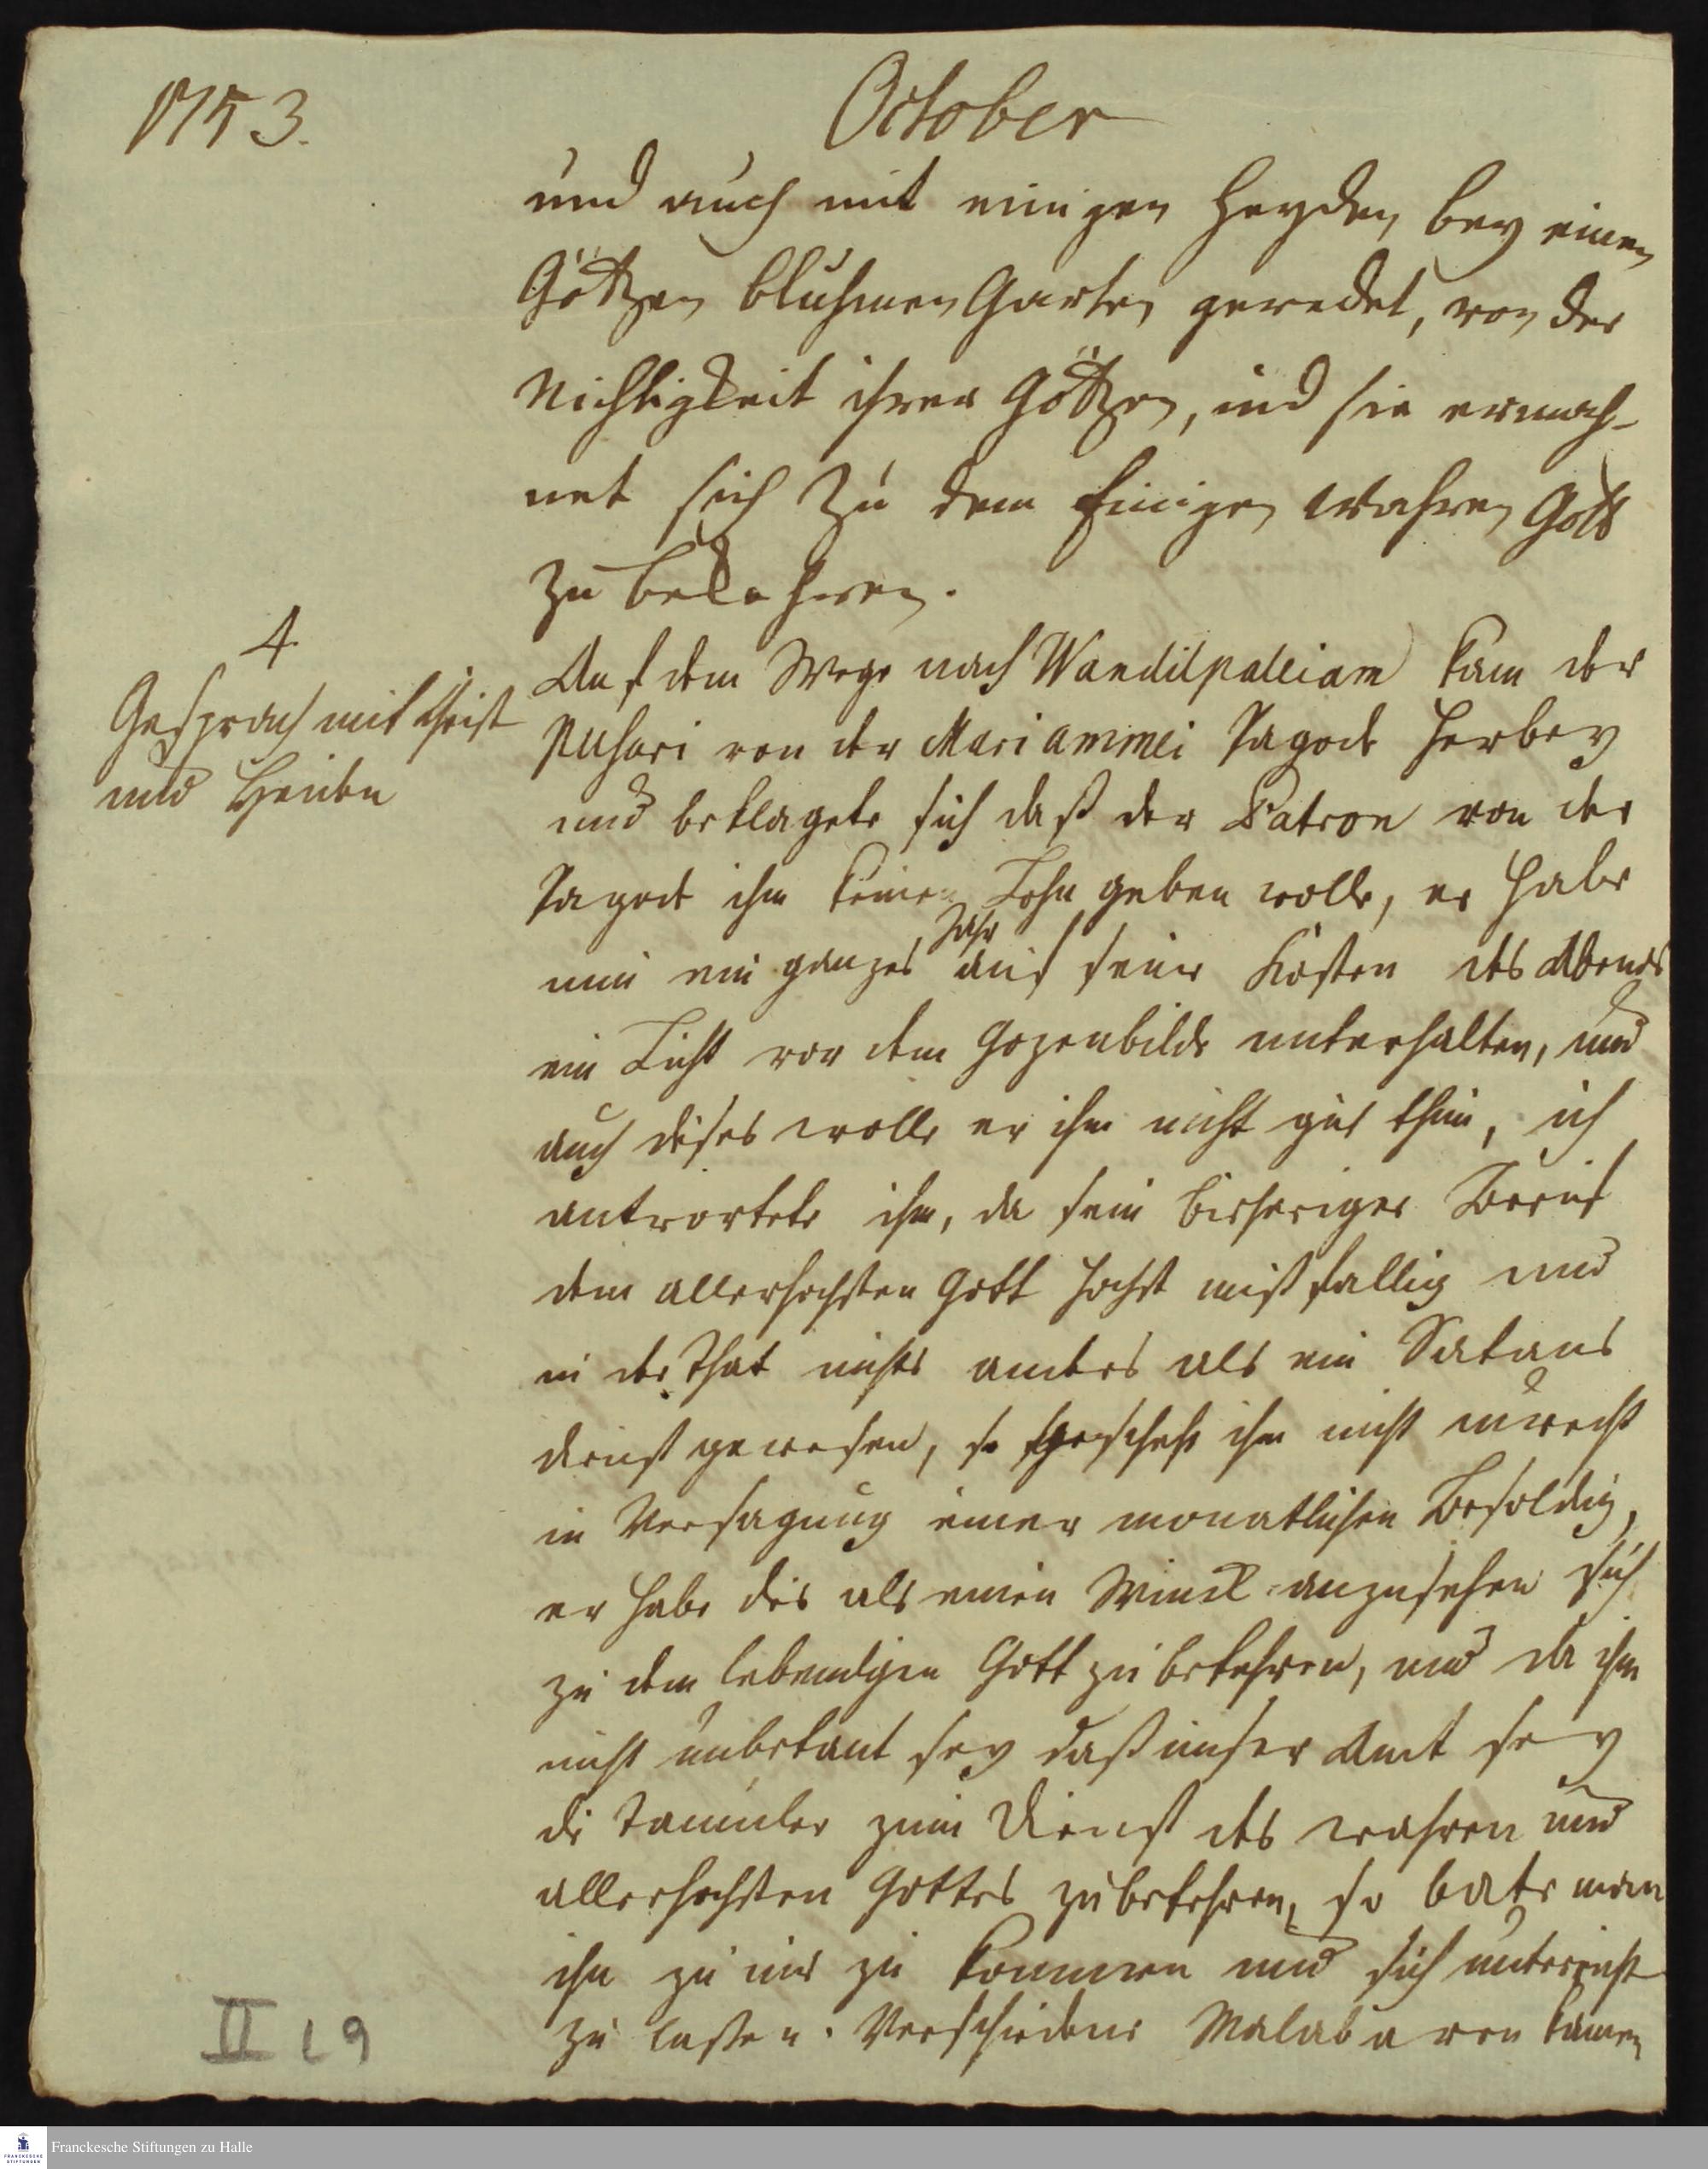 1753.
October
und auch mit einigen Heyden bey einem
Götzen Bluhmen Garten geredet, von der
Nichtigkeit ihrer Götzen, und sie ermah-
net sich zu dem Einigen wahren Gott
zu bekehren.
4.
Gespräch mit Christ
und Heiden
Auf dem Wege nach Wandilpalleiam kam der
Pusari von der Mariammei Pagode herbey
und beklagete sich daß der Patron von der
Pagode ihm keinen Lohn geben wolle, er habe
nun ein ganzes Jahr auf seine Kosten des Abends
ein Licht vor dem Gozenbilde unterhalten, und
auch dieses wolle er ihm nicht gut thun, ich
antwortete ihm, da sein bisheriger Beruf
dem allerhochsten Gott hochst mißfallig und
in der That nichts anders als ein Satans
dienst gewesen, so geschehe ihm nicht unrecht
in Versagung einer monatlichen Besoldung,
er habe dis als einen Winck anzusehen sich
zu dem lebendigen Gott zu bekehren, und da ihm
nicht unbekant sey daß unser Amt sey
di Tamuler zum Dienst des wahren und
allerhochsten Gottes zu bekehren, so bate man
ihn zu uns zu kommen und sich unterricht
zu lassen. Verschiedene Malabaren kamen
II L 9
Franckesche Stiftungen zu Halle
FRANCKESCHE
STIFTUNGEN